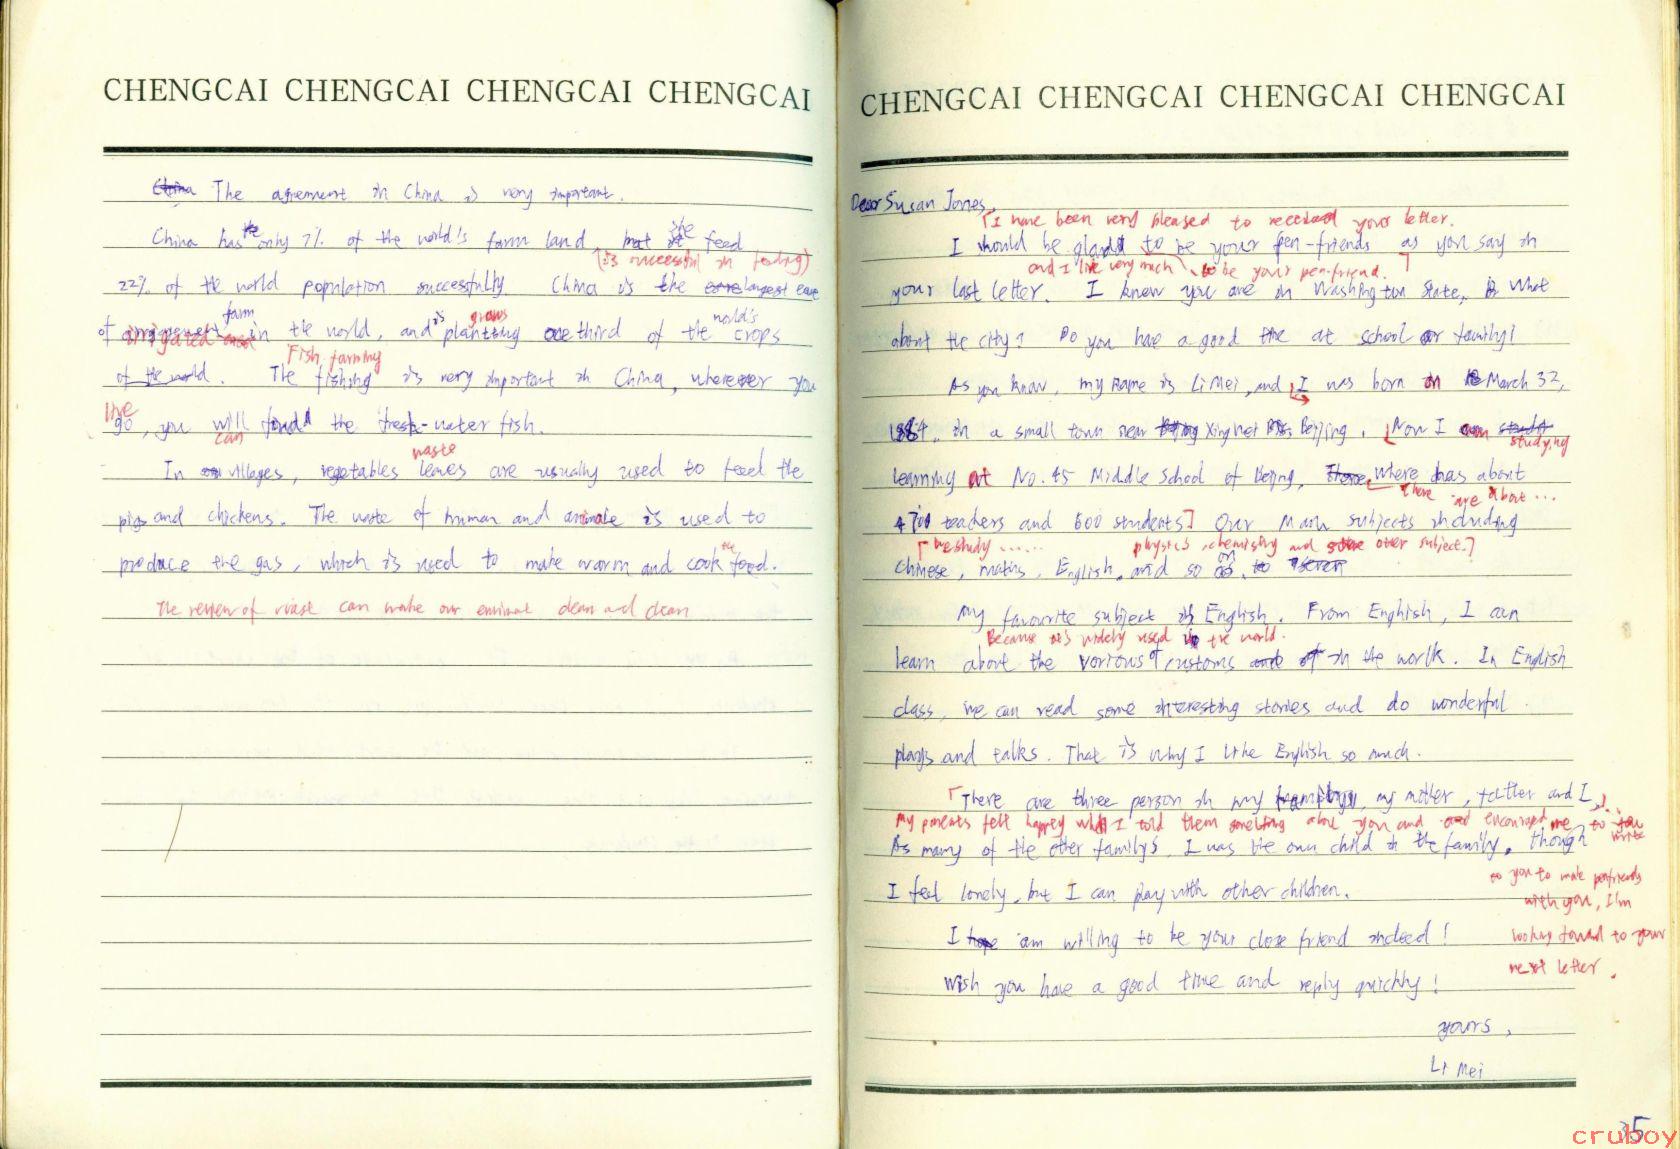 CHENGCAI CHENGCAI CHENGCAI CHENGCAI
China The agreement in China is very important.
China has the only 7% of the world's farm land but she feed
(is successful in feeding)
22% of the world population successfully. China is the largest
farm grows world's
of irrigated in the world, and is planting one third of the crops
Fish farming
of the world. The fishing is very important in China, wherever you
live
go, you will find the fresh-water fish.
can
waste
In villages, vegetables leaves are usually used to feed the
pigs and chickens. The waste of human and animale is used to
the
produce the gas, which is used to make warm and cook food.
The of can make our clean and clean
CHENGCAI CHENGCAI CHENGCAI CHENGCAI
Dear Susan Jones,
I have been very pleased to received your letter.
I should be glad to be your pen-friends as you say in
and I like very much to be your pen-friend.
your last letter. I know you are in Washington State, What
about the city? Do you have a good time at school or family?
As you know, my name is Li Mei, and I was born on March 32,
1984, in a small town near Beijing. Now I am
studying
learning at No. 45 Middle School of Beijing, where has about
There are about ...
teachers and 600 students. Our Main subjects including
We study ...... physics, chemistry and some other subject.
Chinese, maths, English, and so on.
My favourite subject is English. From English, I can
Because it's widely used in the world.
learn about the various customs in the work. In English
class, we can read some interesting stories and do wonderful
plays and talks. That is why I like English so much.
There are three person in my family, my mother, father and I,
My parents felt happy when I told them something about you and encouraged me to
write
As many of the other familys, I was the own child in the family, though
to you to make penfriends
I feel lonely, but I can play with other children.
with you, I'm
I hope am willing to be your close friend indeed!
looking foward to your
next letter.
Wish you have a good time and reply quickly!
yours,
Li Mei
35
cruboy